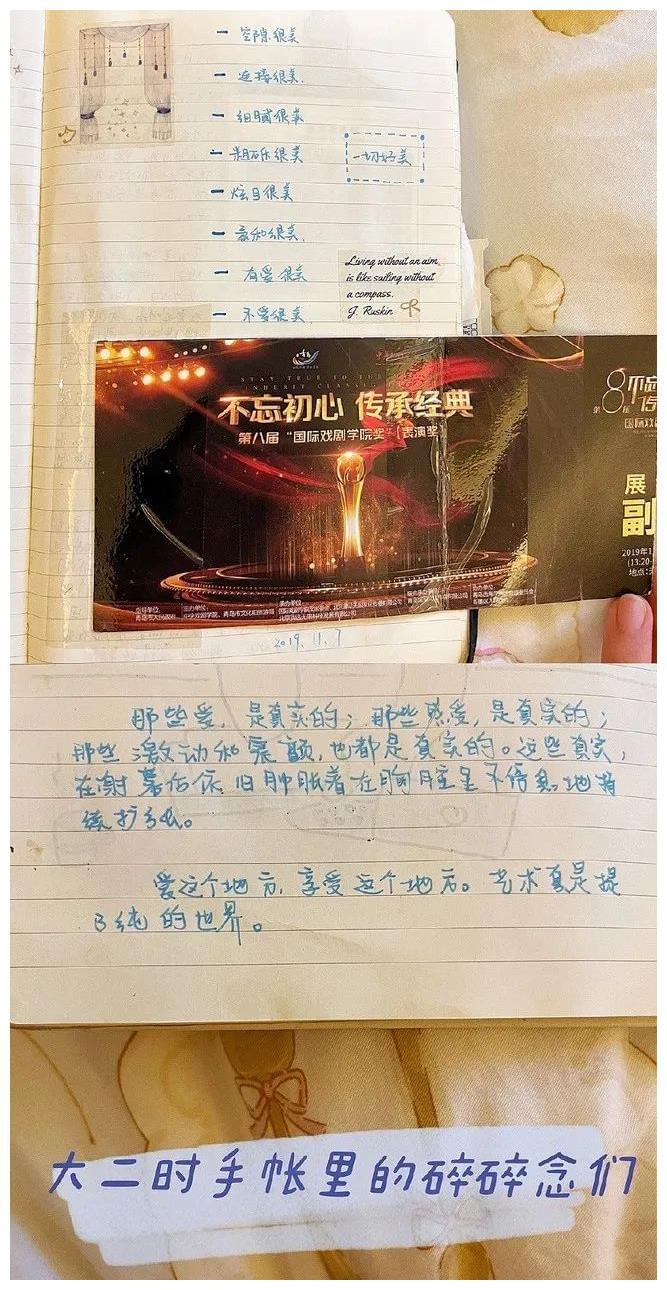 一 空隙很美
一 连接很美.
一 细腻很美
一 粗砾很美
一切好美
一 炫目很美
一 柔和很美.
一 有爱很美
一 不爱很美.
Living without an aim,
is like sailing without
a compass.
J. Ruskin
STAY TRUE TO THE
INHERIT CLASSIC
不忘初心 传承经典
第八届“国际戏剧学院奖”表演奖
指导单位:
主办单位:
承办单位:
第8届
不忘
国际戏
展
副
2019年1
(13:20-
地点:
2019.11.7
那些爱,是真实的;那些热爱,是真实的;
那些激动和震颤,也都是真实的。这些真实,
在谢幕后依旧肿胀着在胸腔里不停息地持
续扩张。
爱这个地方,享受这个地方。艺术真是提
纯的世界。
大二时手帐里的碎碎念们